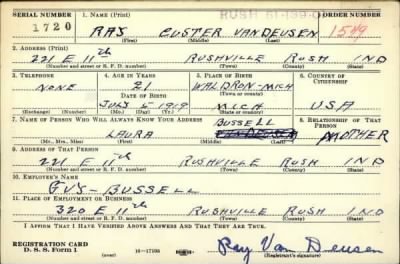 SERIAL NUMBER 1. NAME (Print) RUSH 51-139-0
1720 RAY CUSTER VAN DEUSEN 1549
(First) (Middle) (Last)
2. ADDRESS (Print)
221 E 11th RUSHVILLE RUSH IND
(Number and street or R. F. D. number) (Town) (County) (State)
3. TELEPHONE 4. AGE IN YEARS 5. PLACE OF BIRTH 6. COUNTRY OF CITIZENSHIP
NONE 21 WALDRON-MICH
DATE OF BIRTH (Town or county)
JULY 5 1919 MICH USA
(Exchange) (Number) (Mo.) (Day) (Yr.) (State or country)
7. NAME OF PERSON WHO WILL ALWAYS KNOW YOUR ADDRESS 8. RELATIONSHIP OF THAT PERSON
LAURA BUSSELL MOTHER
(Mr., Mrs., Miss) (First) (Middle) (Last)
9. ADDRESS OF THAT PERSON
221 E 11th RUSHVILLE RUSH IND
(Number and street or R. F. D. number) (Town) (County) (State)
10. EMPLOYER'S NAME
GUS-BUSSELL
11. PLACE OF EMPLOYMENT OR BUSINESS
320 E 11th RUSHVILLE RUSH IND
(Number and street or R. F. D. number) (Town) (County) (State)
I AFFIRM THAT I HAVE VERIFIED ABOVE ANSWERS AND THAT THEY ARE TRUE.
REGISTRATION CARD
D. S. S. Form 1 (over) 16-17105 Ray Van Deusen
(Registrant's signature)